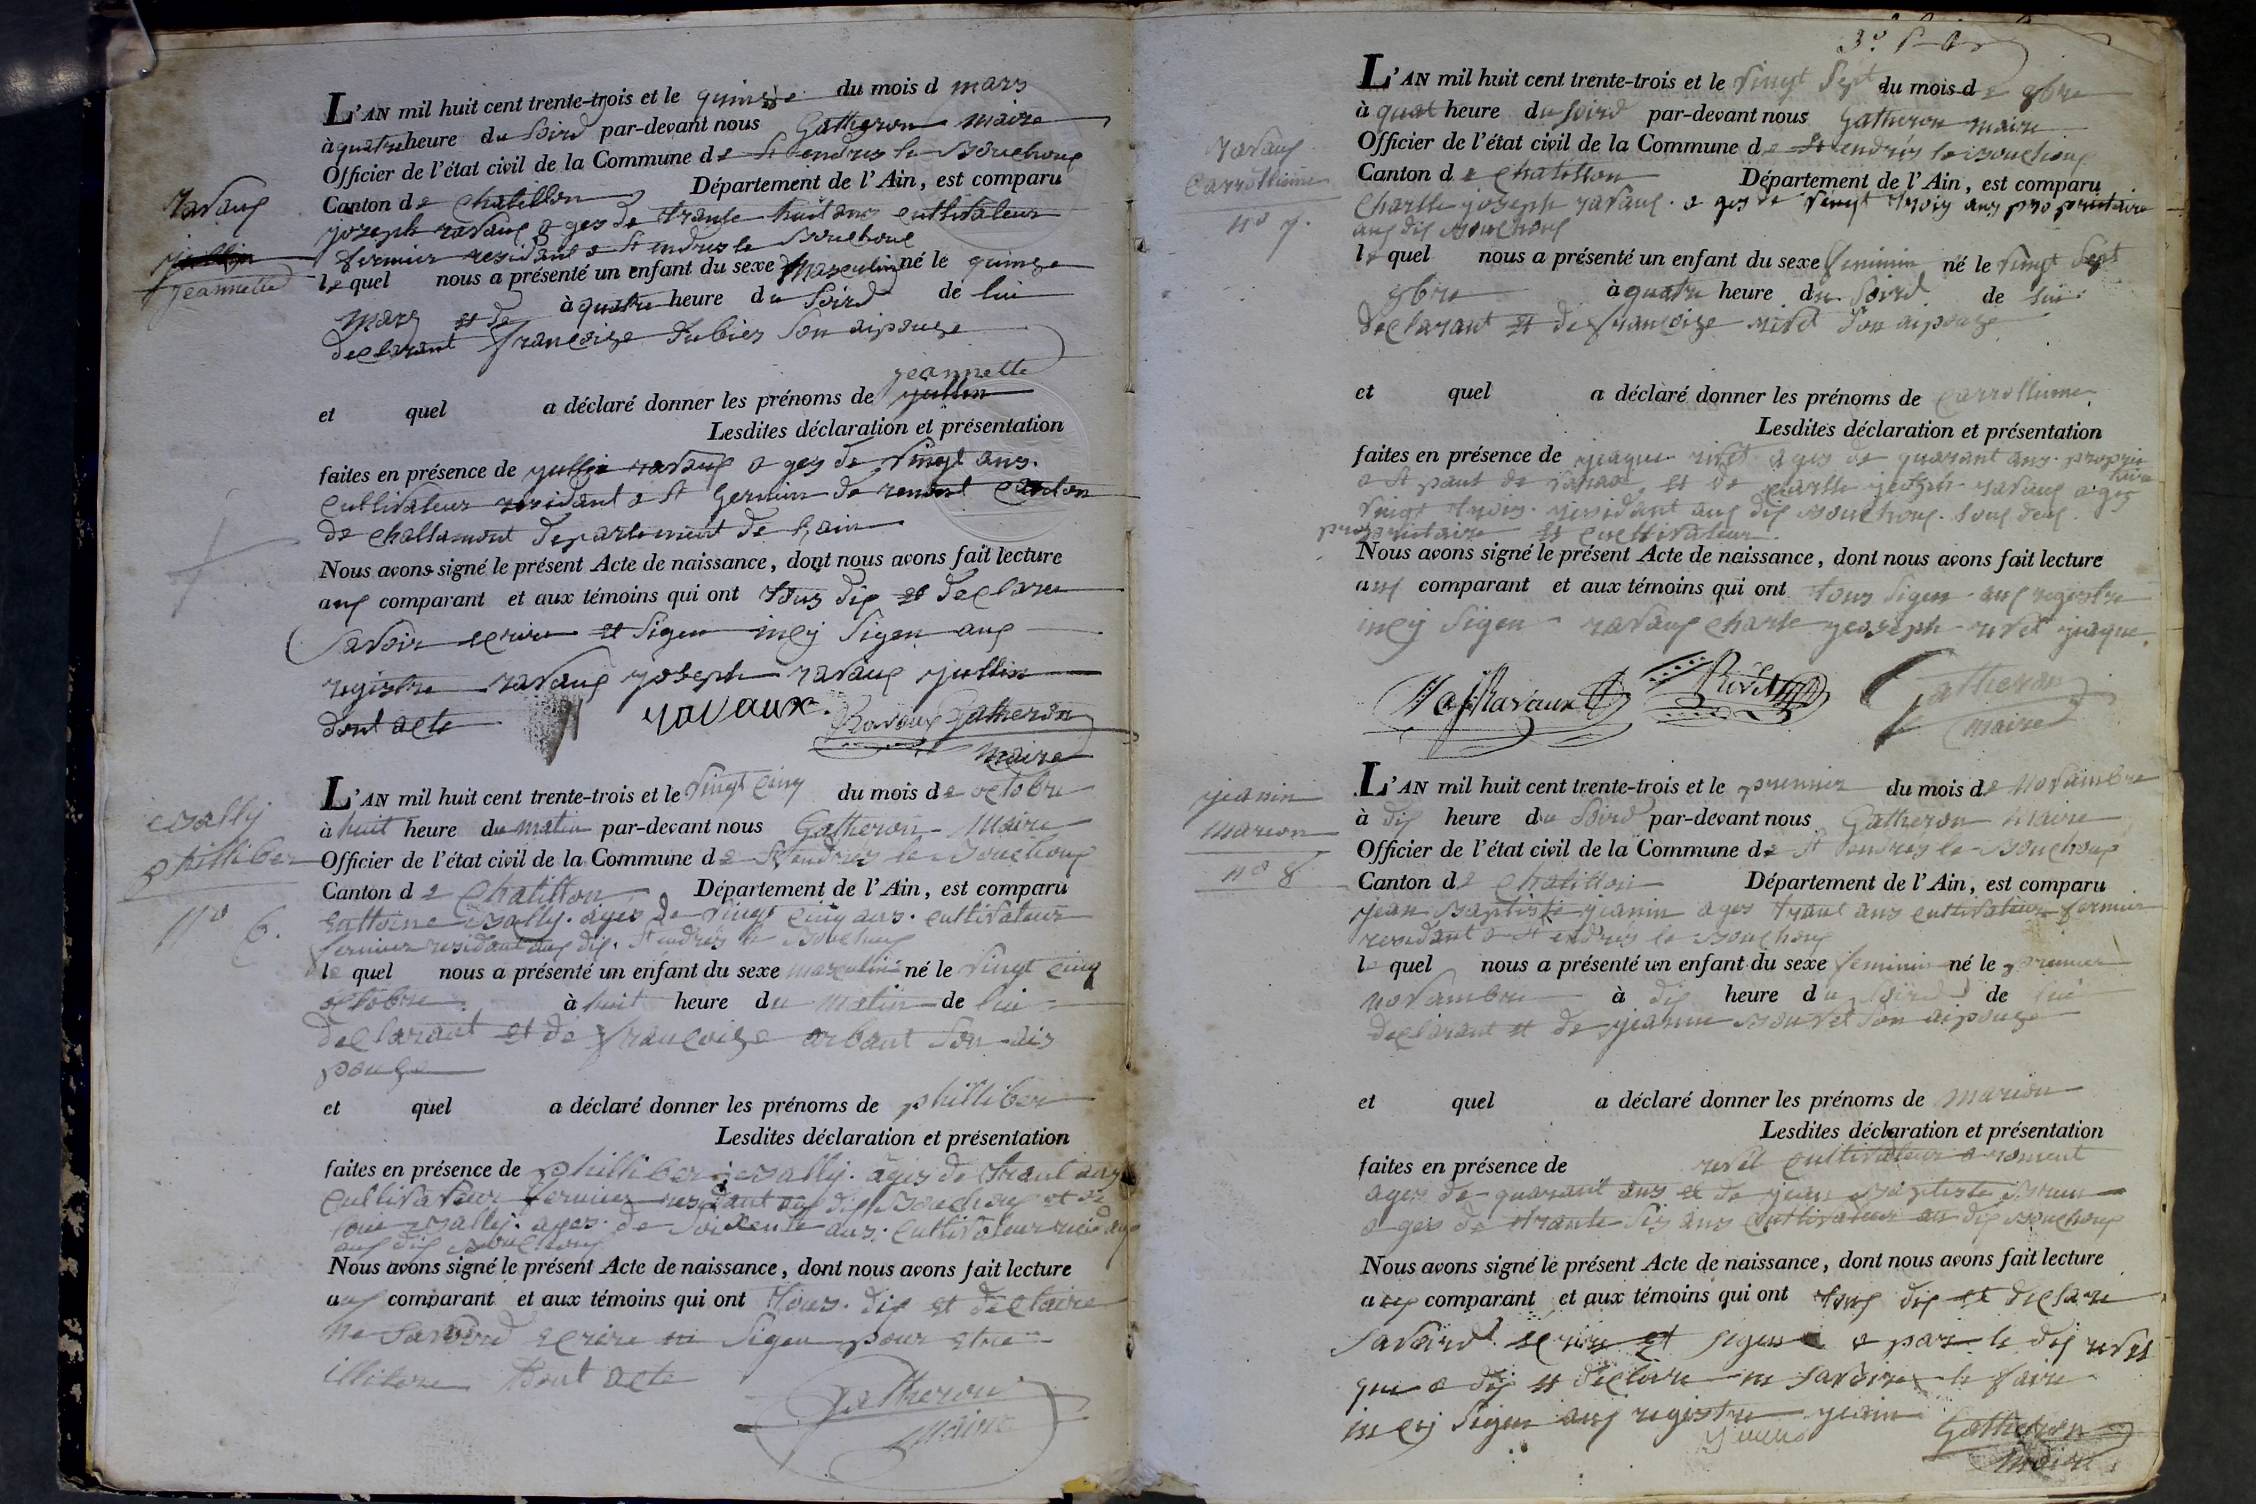 ravaux
jullien
jeannette
L'AN mil huit cent trente-trois et le quinze du mois d mars
à quatre heure du soird par-devant nous Gatheron maire
Officier de l'état civil de la Commune de St endres le Bouchoux
Canton de Chatillon Département de l'Ain, est comparu
joseph ravaux ages de trante huit ans cultivateur
fermier residant a St endres le Bouchoux
le quel nous a présenté un enfant du sexe masculin né le quinze
mars et de à quatre heure du soird de lui
declarant françoize Dubier son aipouze
jeannette
et quel a déclaré donner les prénoms de jullien
Lesdites déclaration et présentation
faites en présence de jullin ravaux a ges de vingt ans.
cultivateur residant a St Germin de renont canton
de challamont departement de l'ain
Nous avons signé le présent Acte de naissance, dont nous avons fait lecture
aux comparant et aux témoins qui ont tous dix et declarer
savoir ecrire et sigen in cy sigen aux
registre ravaux joseph ravaux jullin
dont acte ravaux Ravaux Gatheron
maire
vally
philliber
no 6.
L'AN mil huit cent trente-trois et le vingt cinq du mois de octobre
à huit heure du matin par-devant nous Gatheron Maire
Officier de l'état civil de la Commune de St endres le Bouchoux
Canton de Chatillon Département de l'Ain, est comparu
vally. ages de vingt cinq ans. cultivateur
fermier residant aux dix. St endres le Bouchoux
le quel nous a présenté un enfant du sexe masculin né le vingt cinq
octobre à huit heure du matin de lui
declarant et de françoize arbant son ais
pouze
et quel a déclaré donner les prénoms de philliber
Lesdites déclaration et présentation
faites en présence de philliber vally. ages de trant ans
cultivateur fermier residant aux dix Bouchoux et de
vally. ages. de soixente ans. cultivateur
aux dix Bouchoux
Nous avons signé le présent Acte de naissance, dont nous avons fait lecture
aux comparant et aux témoins qui ont tous. dix et declaire
ne savoird ecrire ni sigen pour etre
illitere dont acte
Gatheron
Maire
3e
ravaux
Carrolline
no 7.
L'AN mil huit cent trente-trois et le vingt sept du mois de 8bre
à quat heure du soird par-devant nous Gatheron maire
Officier de l'état civil de la Commune de St endres le Bouchoux
Canton de Chatillon Département de l'Ain, est comparu
Charlle joseph ravaux. a ges de vingt trois ans proprietaire
aux dix Bouchoux
le quel nous a présenté un enfant du sexe feminin né le vingt sept
8bre à quatre heure du soird de lui
declarant et de françoize rivet son aipouze
et quel a déclaré donner les prénoms de Carrolline
Lesdites déclaration et présentation
faites en présence de jaque rivet ages de quarant ans. proprie
taire
a St paul de varax et de charlle joseph ravaux ages
vingt trois. residant aux dix Bouchoux. tous deux
proprietaire et cultivateur.
Nous avons signé le présent Acte de naissance, dont nous avons fait lecture
aux comparant et aux témoins qui ont tous sigen aux registre
in cy sigen ravaux charle joseph rivet jaque
Ravaux Rivet Gatheron
maire
jeanin
marion
no 8
L'AN mil huit cent trente-trois et le premier du mois de Novambre
à dix heure du soird par-devant nous Gatheron Maire
Officier de l'état civil de la Commune de St endres le Bouchoux
Canton de Chatillon Département de l'Ain, est comparu
jean Baptiste jeanin ages trant ans cultivateur fermier
residant a St endres le Bouchoux
le quel nous a présenté un enfant du sexe feminin né le premier
novambre à dix heure du soird de lui
declarant et de jeanne Bouvet son aipouze
et quel a déclaré donner les prénoms de marion
Lesdites déclaration et présentation
faites en présence de rivet cultivateur a roment
ages de quarant ans et de jean Baptiste Brun
a ges de trante six ans cultivateur au dix Bouchoux
Nous avons signé le présent Acte de naissance, dont nous avons fait lecture
aux comparant et aux témoins qui ont tous dix et declare
savoird ecrire et sigen a par le dix rivet
que a dix et declare ne savoire le faire
in cy sigen aux registre jeanin
Gatheron
Maire